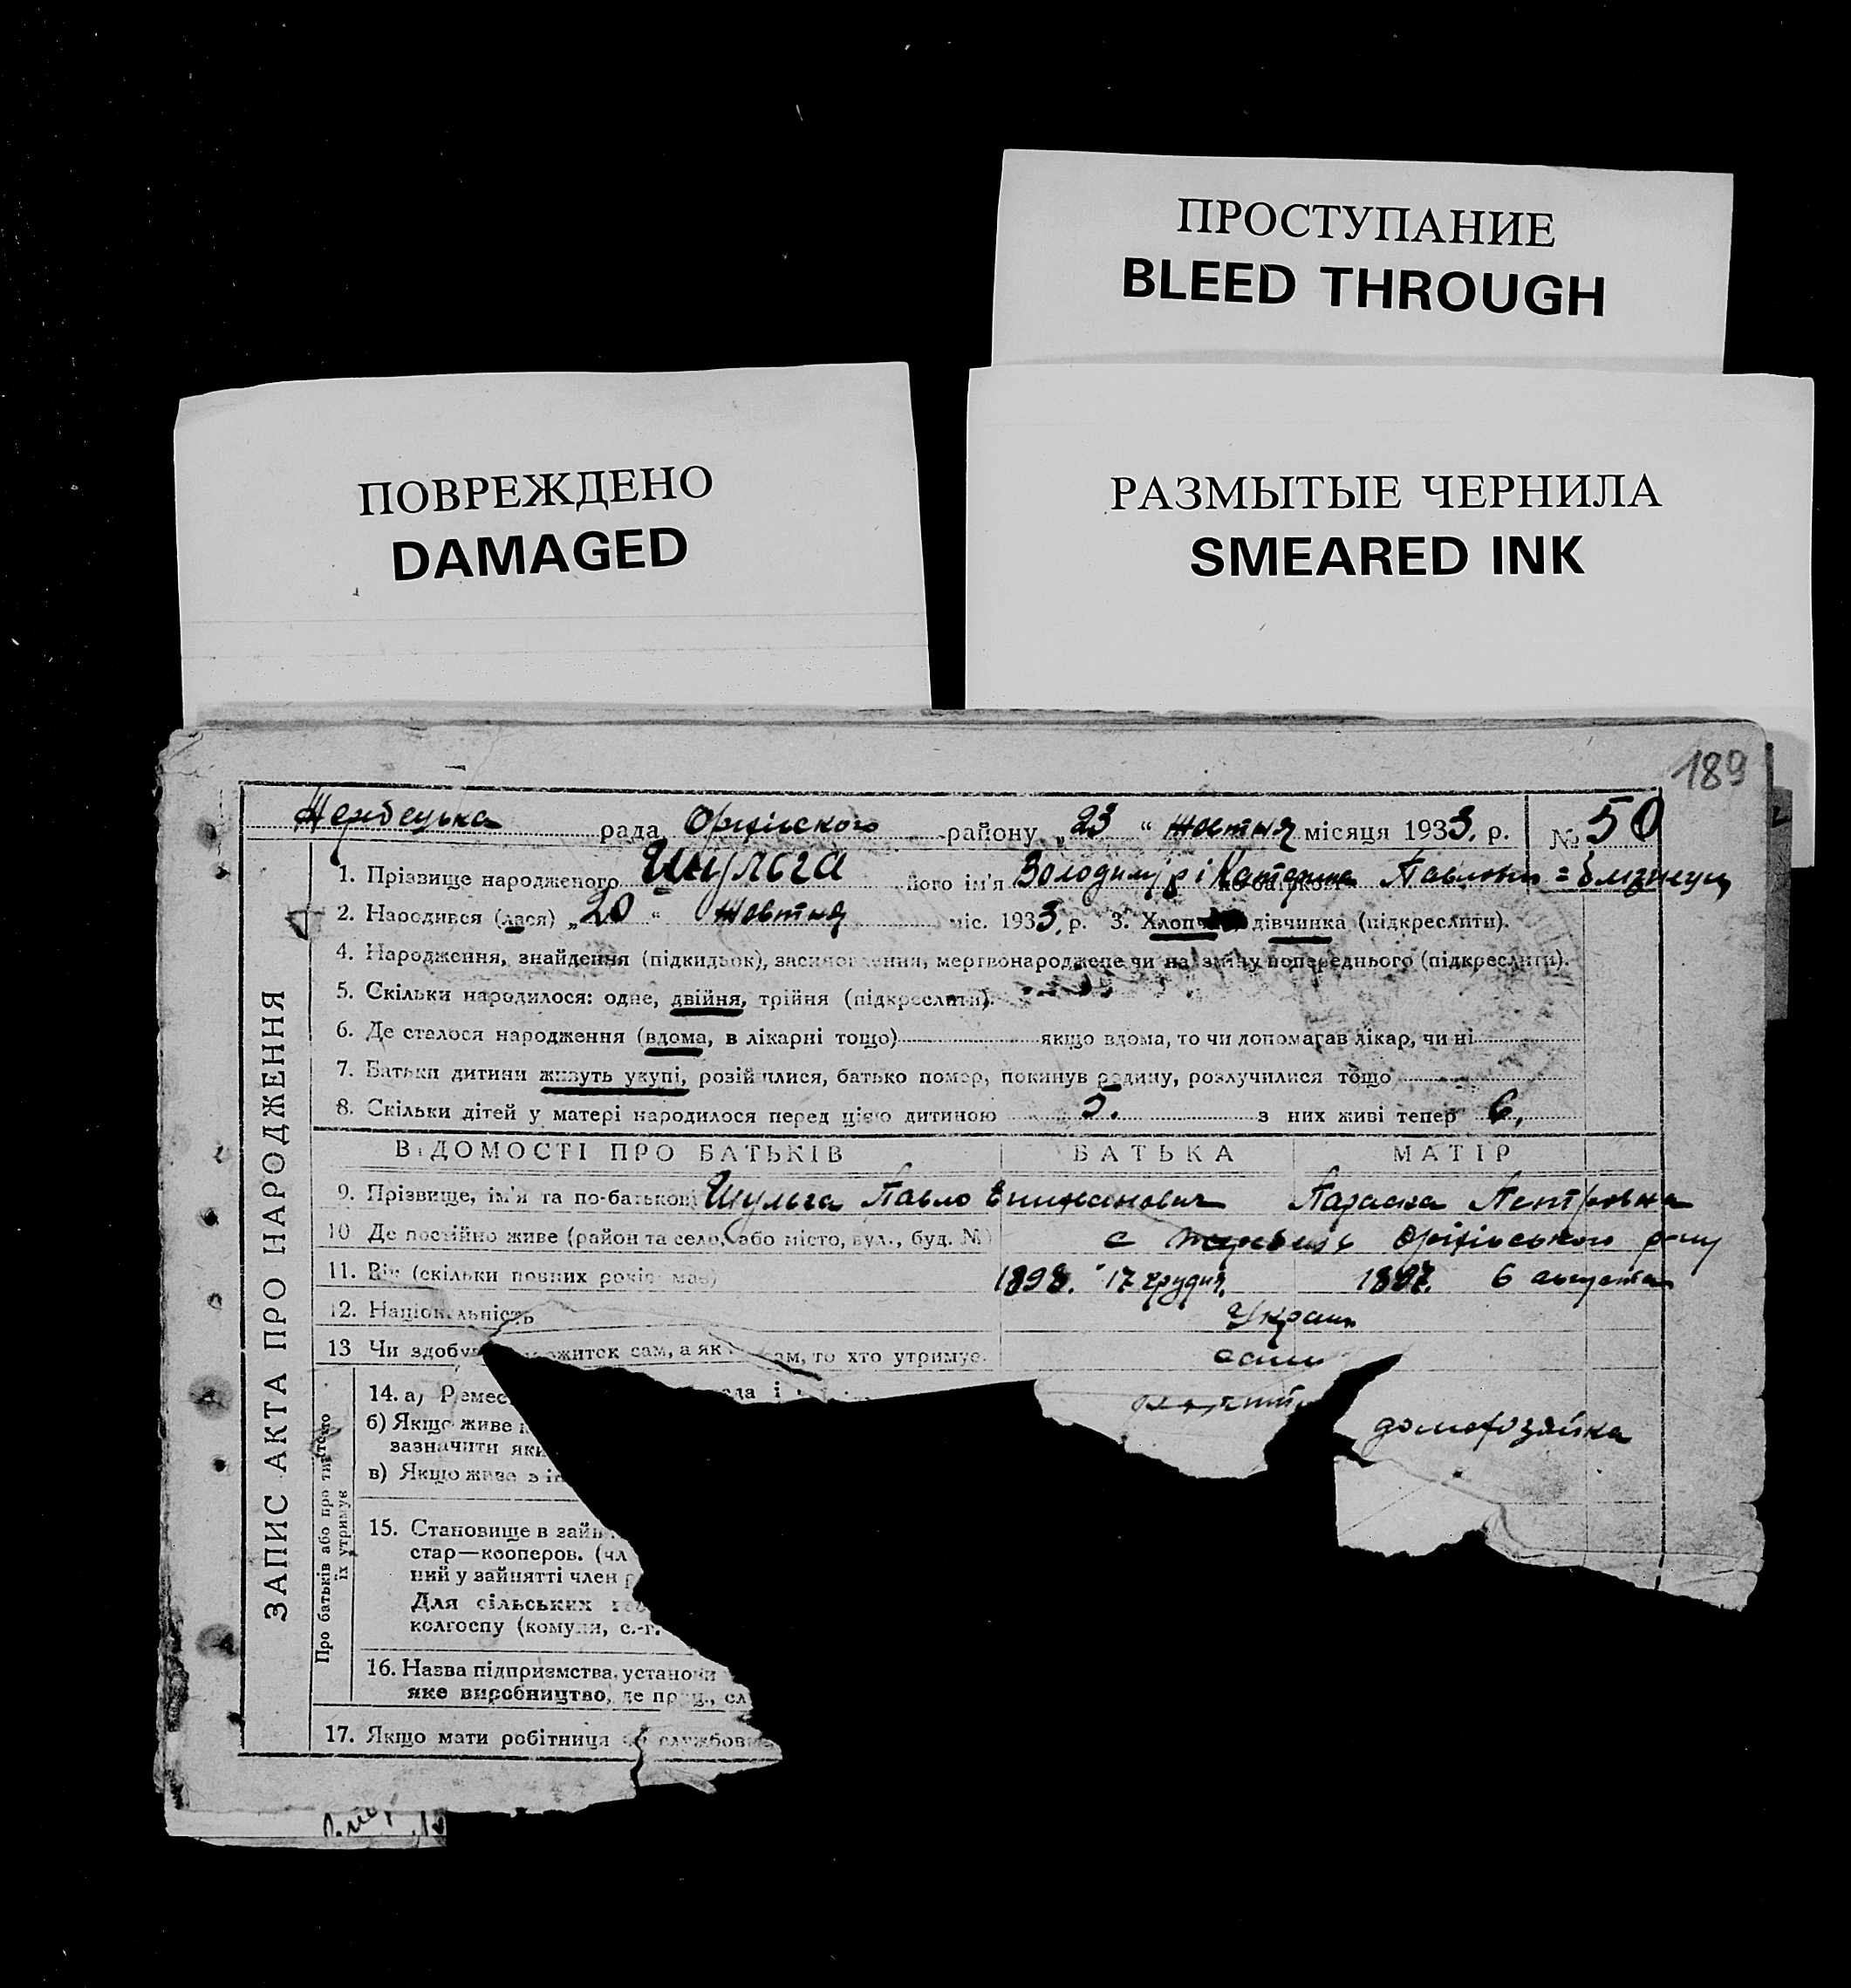 ПРОСТУПАНИЕ
BLEED THROUGH
ПОВРЕЖДЕНО
DAMAGED
РАЗМЫТЫЕ ЧЕРНИЛА
SMEARED INK
189
рада району „23“ жовтня місяця 1933. р. № 50
1. Прізвище народженого Шульга його ім'я Володимир і Катерина = близнецы
2. Народився (лася) „20“ жовтня міс. 1933, р. 3. Хлопч дівчинка (підкреслити).
4. Народження, знайдення (підкидьок), мертвонароджене чи на попереднього (підкреслити).
5. Скільки народилося: одне, двійня, трійня (підкреслити).
6. Де сталося народження (вдома, в лікарні тощо) якщо вдома, то чи допомагав лікар, чи ні
7. Батьки дитини живуть укупі, розійшлися, батько помер, покинув родину, розлучилися тощо
8. Скільки дітей у матері народилося перед цією дитиною 5. з них живі тепер 6,
ВІДОМОСТІ ПРО БАТЬКІВ БАТЬКА МАТІР
9. Прізвище, ім'я та по-батькові Шульга Павло Параска Петровна
10 Де постійно живе (район та село, або місто, вул., буд. №) с
11. Вік (скільки повних років має) 1898. 17 грудня. 6 августа
12. Національність Украин
13 Чи здобу ожиток сам, а як сам, то хто утримує. сами
14. а) Ремес да і
б) Якщо живе
зазначити яки
домохозяйка
в) Якщо живе з ін
15. Становище в зайн
стар—кооперов. (чл
ний у зайнятті член р
Для сільських
колгоспу (комуни, с.-г.
16. Назва підприємства, установи
яке виробництво, де прац., сл
17. Якщо мати робітниця службов
ЗАПИС АКТА ПРО НАРОДЖЕННЯ
Про батьків або про тих, хто
їх утримує